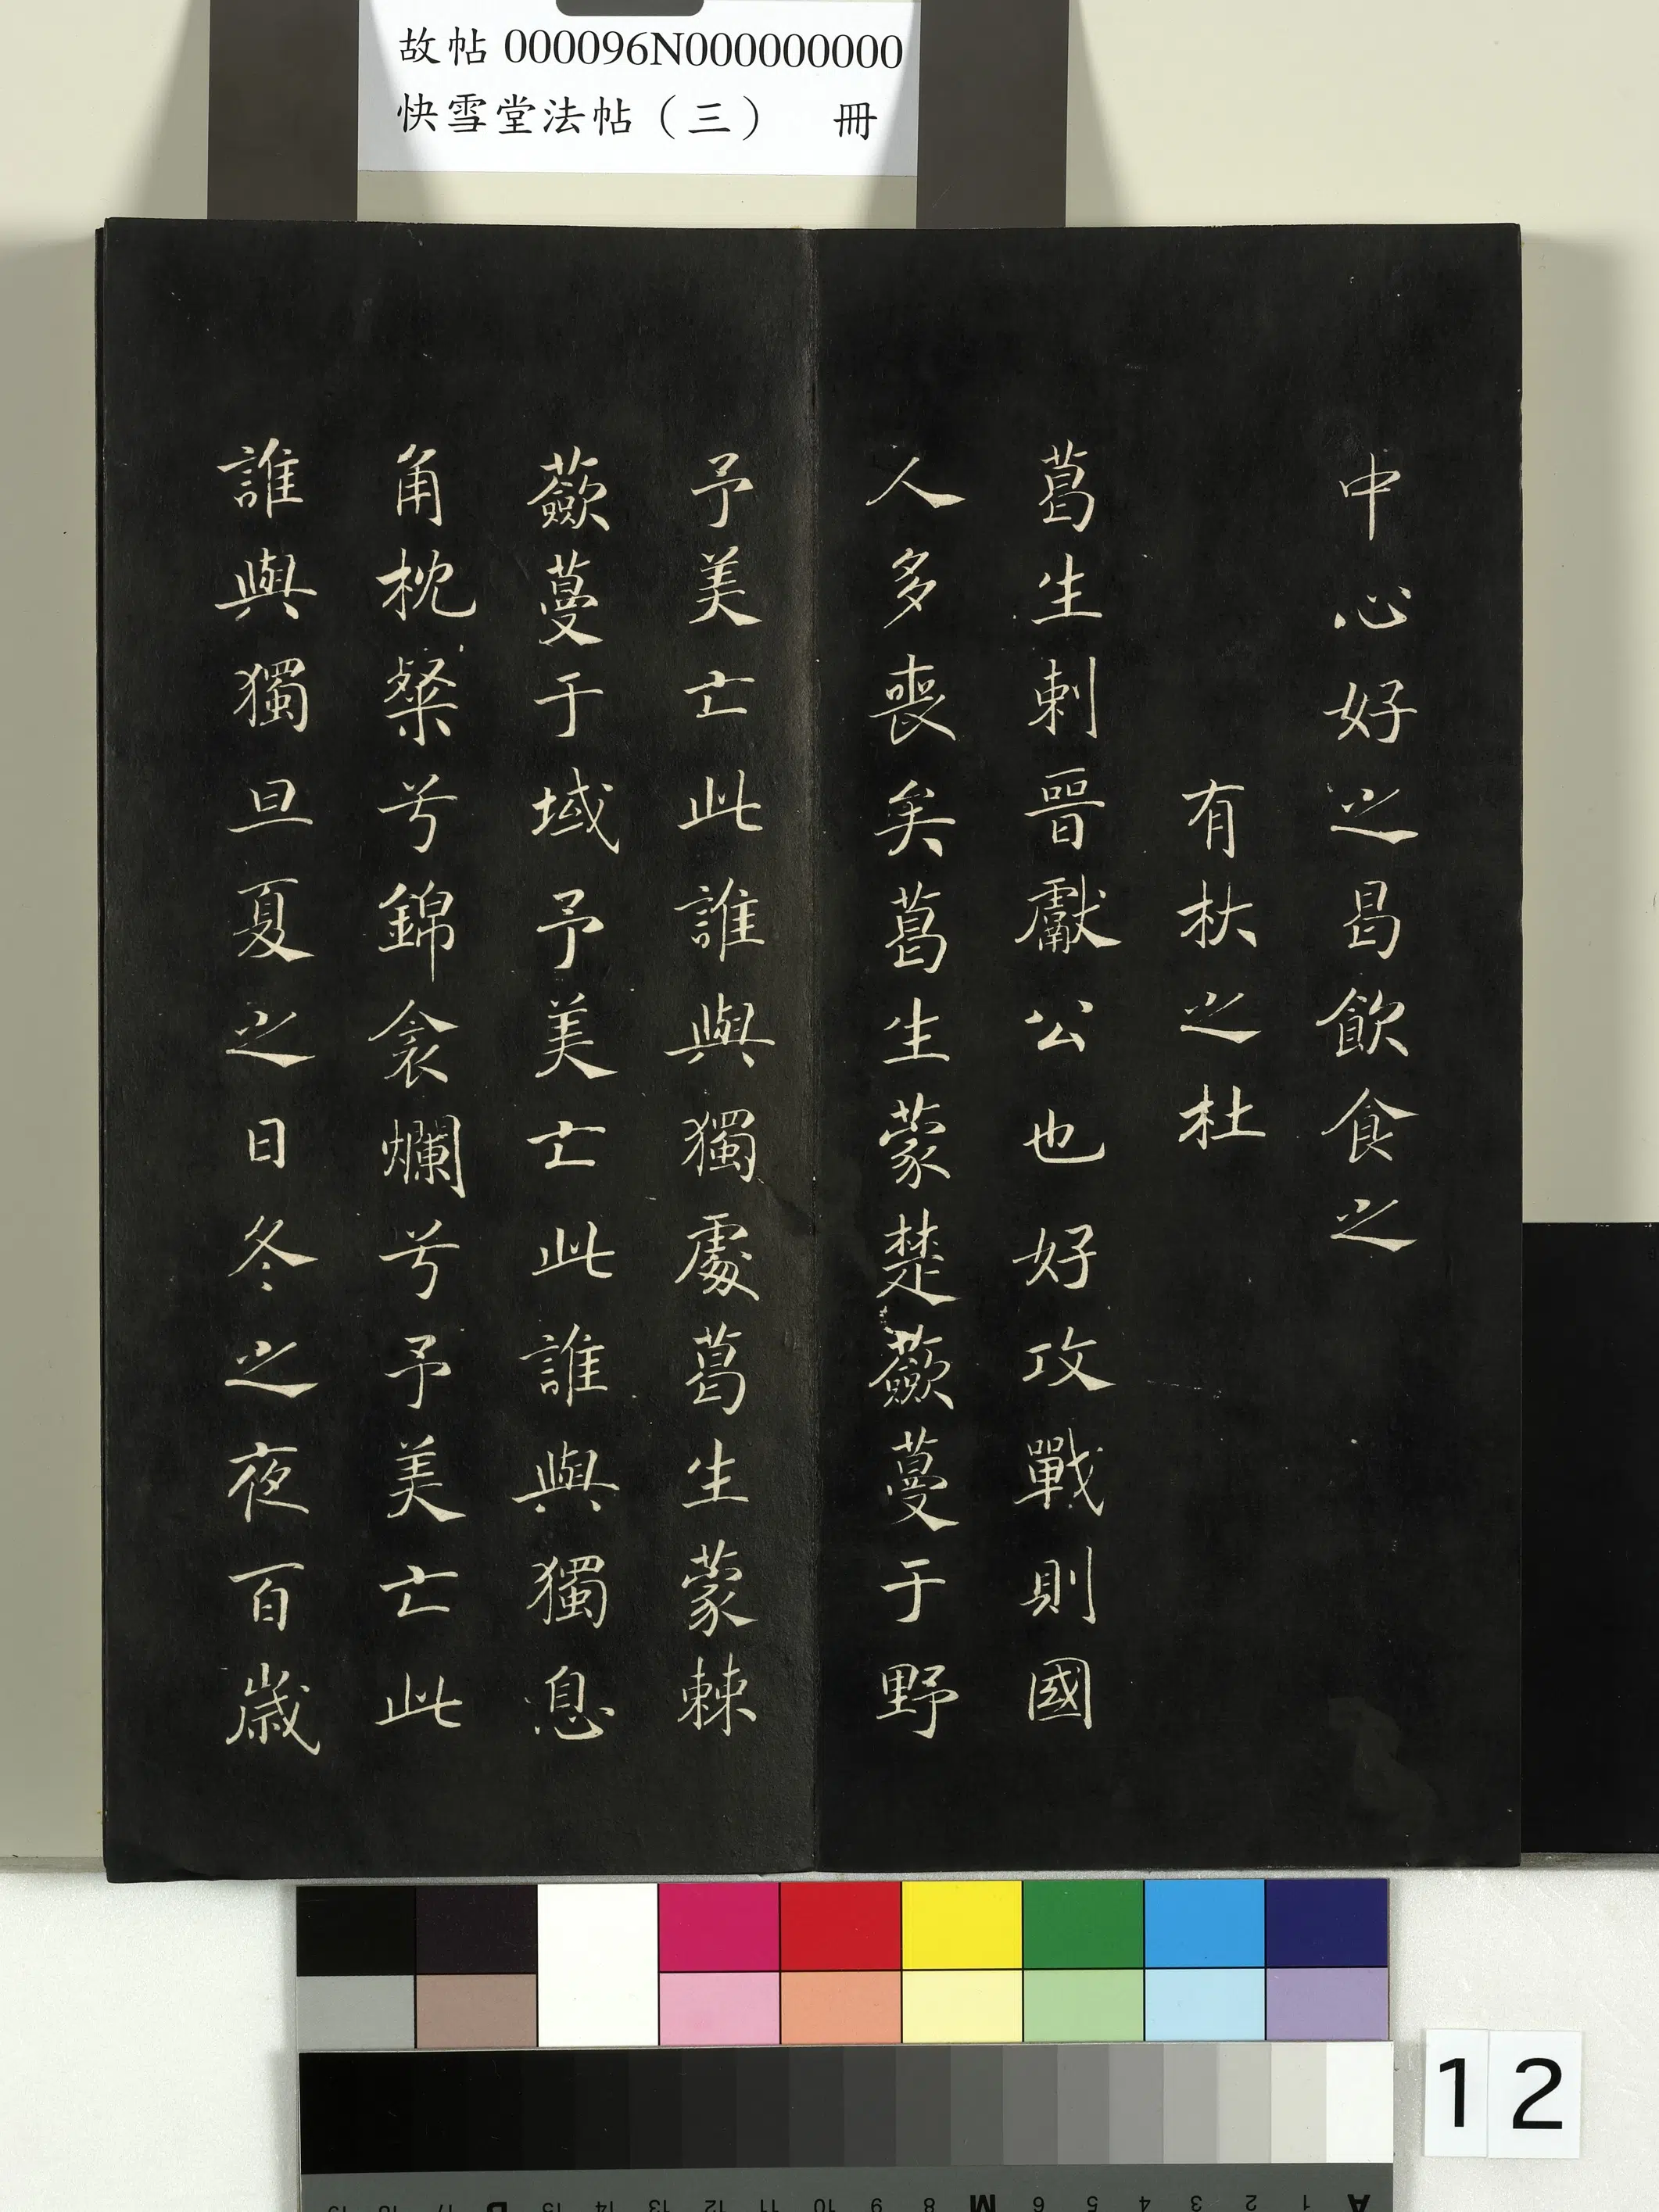 故帖 000096N000000000
快雪堂法帖（三）　冊
中心好之曷飲食之
有杕之杜
葛生刺晉獻公也好攻戰則國
人多喪矣葛生蒙楚蘞蔓于野
予美亡此誰與獨處葛生蒙棘
蘞蔓于域予美亡此誰與獨息
角枕粲兮錦衾爛兮予美亡此
誰與獨旦夏之日冬之夜百歲
12
19 18 17 B 15 14 13 12 11 10 9 8 M 6 5 4 3 2 1 A